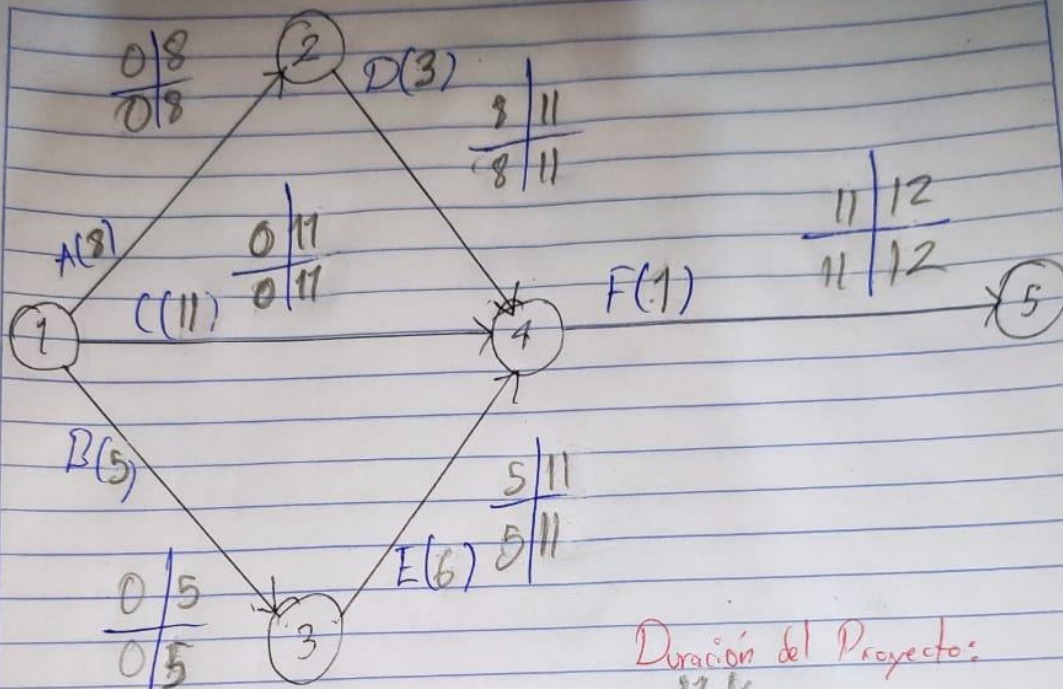 0 8
0 8
2
D(3)
8 11
8 11
A(8)
0 11
0 11
C(11)
11 12
11 12
F(1)
1
4
5
B(5)
5 11
5 11
E(6)
0 5
0 5
3
Duración del Proyecto: